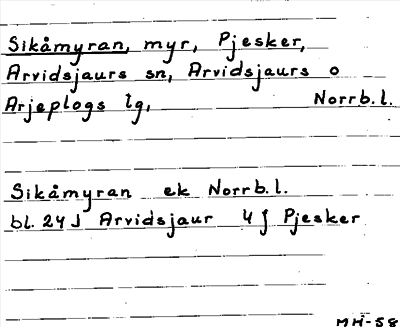 Sikåmyran, myr, Pjesker,
Arvidsjaurs sn, Arvidsjaurs o
Arjeplogs lg, Norrb.l.
Sikåmyran ek Norrb.l.
bl. 24 J Arvidsjaur 4 f Pjesker
MH-58